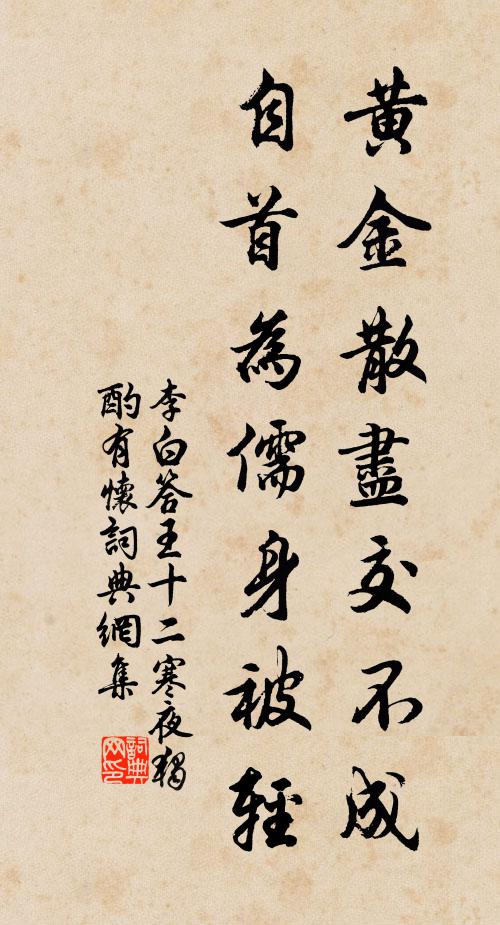 黃金散盡交不成
自首為儒身被輕
李白答王十二寒夜獨
酌有懷詞典網集
詞典
网印